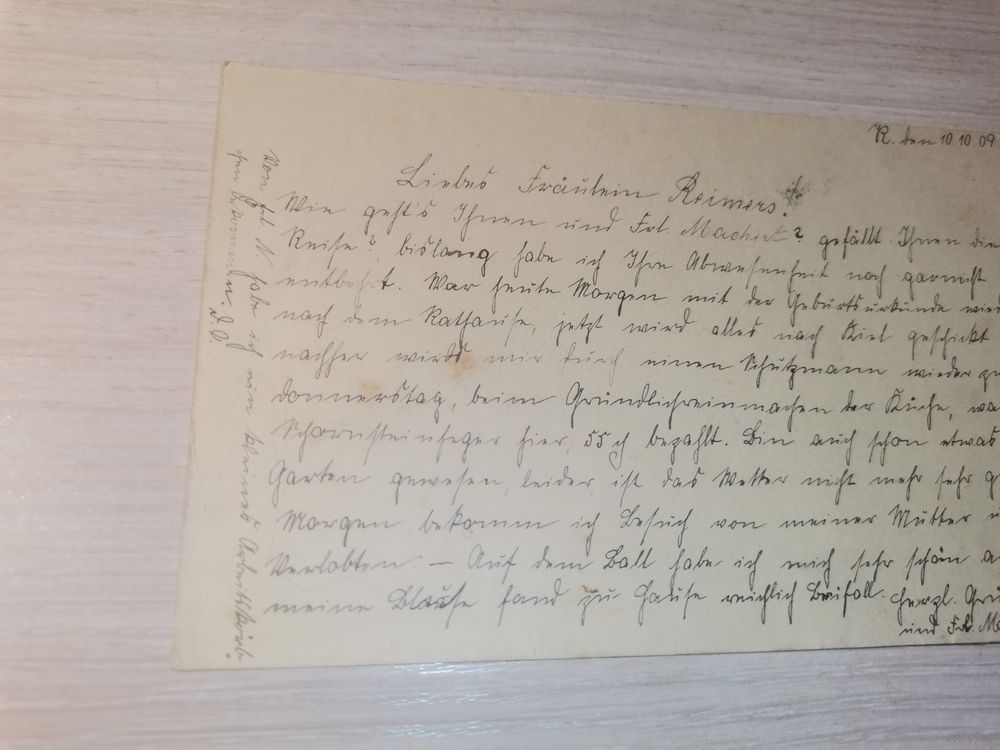 R. den 10.10.09
Liebes Fräulein Reimers!
Wie geht's Ihnen und Frl. Machert? gefällt Ihnen die
Reise?, bislang habe ich Ihre Abwesenheit noch garnicht
entbehrt. War heute Morgen mit der Geburtsurkunde wie
nach dem Rathause, jetzt wird alles nach Kiel geschickt
nachher wird mir durch einen Schutzmann wieder zu
Donnerstag, beim Gründlichreinmachen der Küche, wa
Schornsteinfeger hier, 55 ₰ bezahlt. Bin auch schon etwas
Garten gewesen, leider ist das Wetter nicht mehr sehr g
Morgen bekomm ich Besuch von meiner Mutter u
Verlobten. — Auf dem Ball habe ich mich sehr schön a
meine Blause fand zu Hause reichlich Beifall. Herzl. Grü
und Frl. M
Von Frl. N. habe ich ein kleines Arbeitskörb-
chen bekommen. D.O.